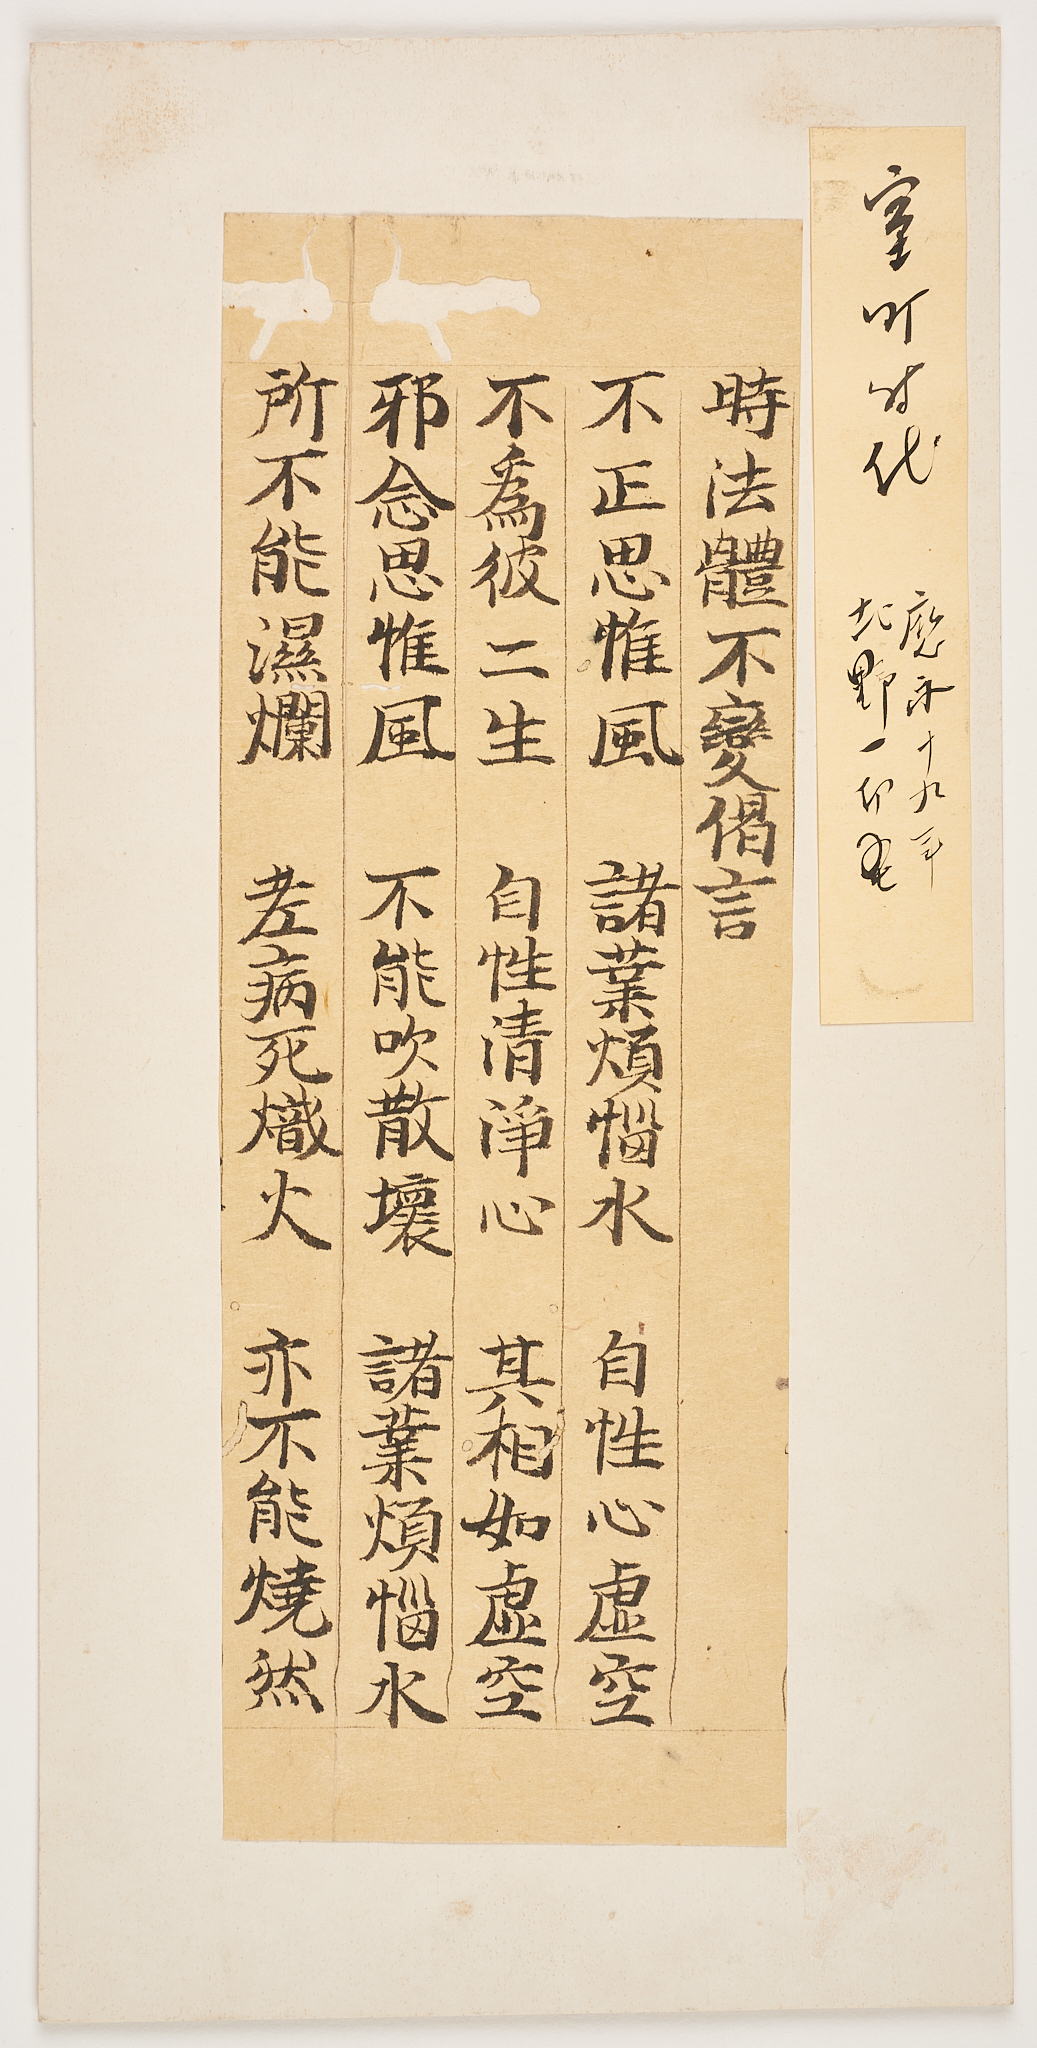 室町時代
應永十九年
北野一切経
時法體不變偈言
不正思惟風　諸業煩惱水　自性心虛空
不爲彼二生　自性清淨心　其相如虛空
邪念思惟風　不能吹散壞　諸業煩惱水
所不能濕爛　老病死熾火　亦不能燒然